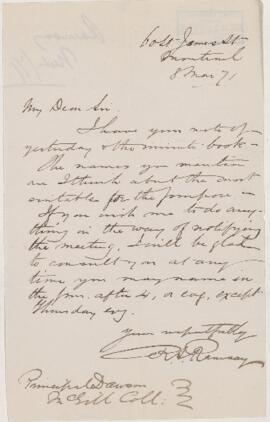 60 St James St
Montreal
8 Mar 71
My Dear Sir
I have your note of
yesterday & the minute-book—
The names you mention
are I think about the most
suitable for the purpose
If you wish me to do any-
thing in the way of notifying
the meeting, I will be glad
to consult you at any
time you may name in
the after 4, or evg. except
Thursday evg.
Yours respectfully
R. A. Ramsay
Principal Dawson
McGill Coll.